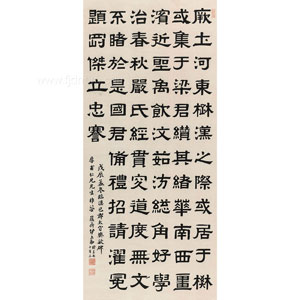 厥土河東楚漢之際或居于楚
或集于梁君纘其緒華南西疆
濱近聖禹飲汶茹汸總角好學
治春秋嚴氏經貫究道度無文
不睹於是國君備禮招請濯冕
題罡傑立忠謇
戊辰孟冬臨漢巴郡太守樊敏碑